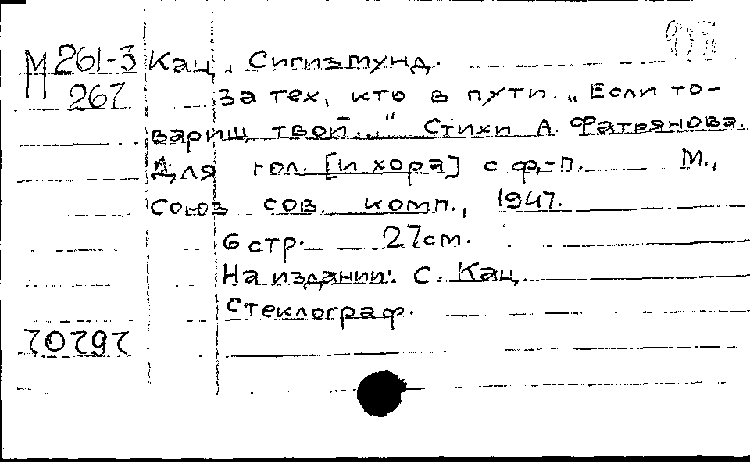 М 261-3 Кац, Сигизмунд.
267 За тех, кто в пути. „Если то-
варищ твой..." Стихи А. Фатьянова.
Для гол. [и хора] с ф.-п. М.,
Союз сов. комп., 1947.
6 стр. 27см.
На издании: С. Кац
Стеклограф.